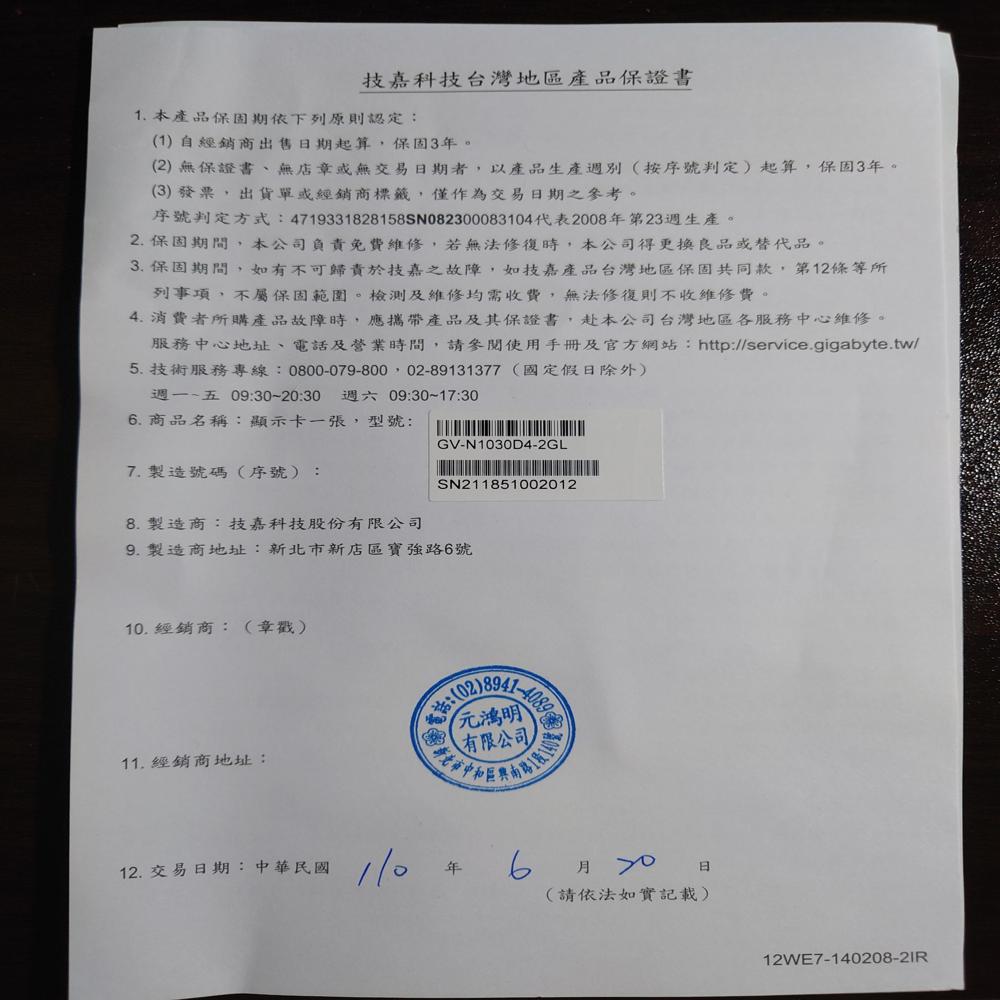 技嘉科技台灣地區產品保證書
1. 本產品保固期依下列原則認定：
(1) 自經銷商出售日期起算，保固3年。
(2) 無保證書、無店章或無交易日期者，以產品生產週別（按序號判定）起算，保固3年。
(3) 發票，出貨單或經銷商標籤，僅作為交易日期之參考。
序號判定方式：4719331828158SN082300083104代表2008年第23週生產。
2. 保固期間，本公司負責免費維修，若無法修復時，本公司得更換良品或替代品。
3. 保固期間，如有不可歸責於技嘉之故障，如技嘉產品台灣地區保固共同款，第12條等所
列事項，不屬保固範圍。檢測及維修均需收費，無法修復則不收維修費。
4. 消費者所購產品故障時，應攜帶產品及其保證書，赴本公司台灣地區各服務中心維修。
服務中心地址、電話及營業時間，請參閱使用手冊及官方網站：http://service.gigabyte.tw/
5. 技術服務專線：0800-079-800，02-89131377（國定假日除外）
週一~五 09:30~20:30 週六 09:30~17:30
6. 商品名稱：顯示卡一張，型號:
GV-N1030D4-2GL
7. 製造號碼（序號）：
SN211851002012
8. 製造商：技嘉科技股份有限公司
9. 製造商地址：新北市新店區寶強路6號
10. 經銷商：（章戳）
電話:(02)8941-4089
元鴻明
有限公司
新北市中和區興南路1段140號
11. 經銷商地址：
12. 交易日期：中華民國 110 年 6 月 20 日
（請依法如實記載）
12WE7-140208-2IR